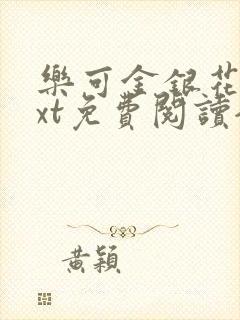 樂可金銀花
xt免費閱讀
黃穎